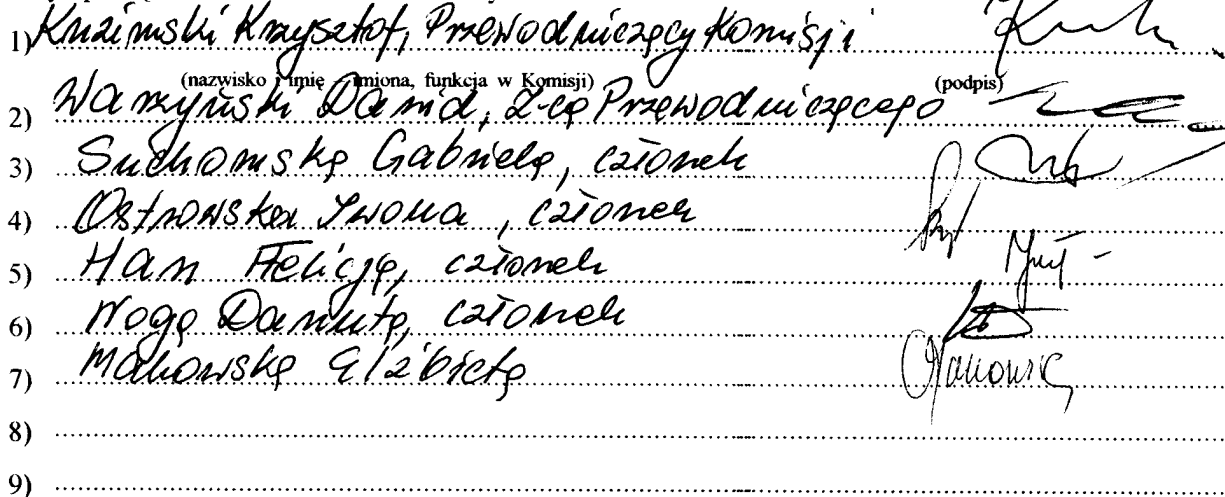 1) Kuziński Krzysztof, Przewodniczący Komisji
(nazwisko i imię imiona, funkcja w Komisji) (podpis)
2) Warzyński Dawid, Z-cą Przewodniczącego
3) Suchomską Gabrielą, członek
4) Ostrowska Iwona, członek
5) Han Felicję, członek
6) Danutą, członek
7) Makowską Elżbietą
8)
9)